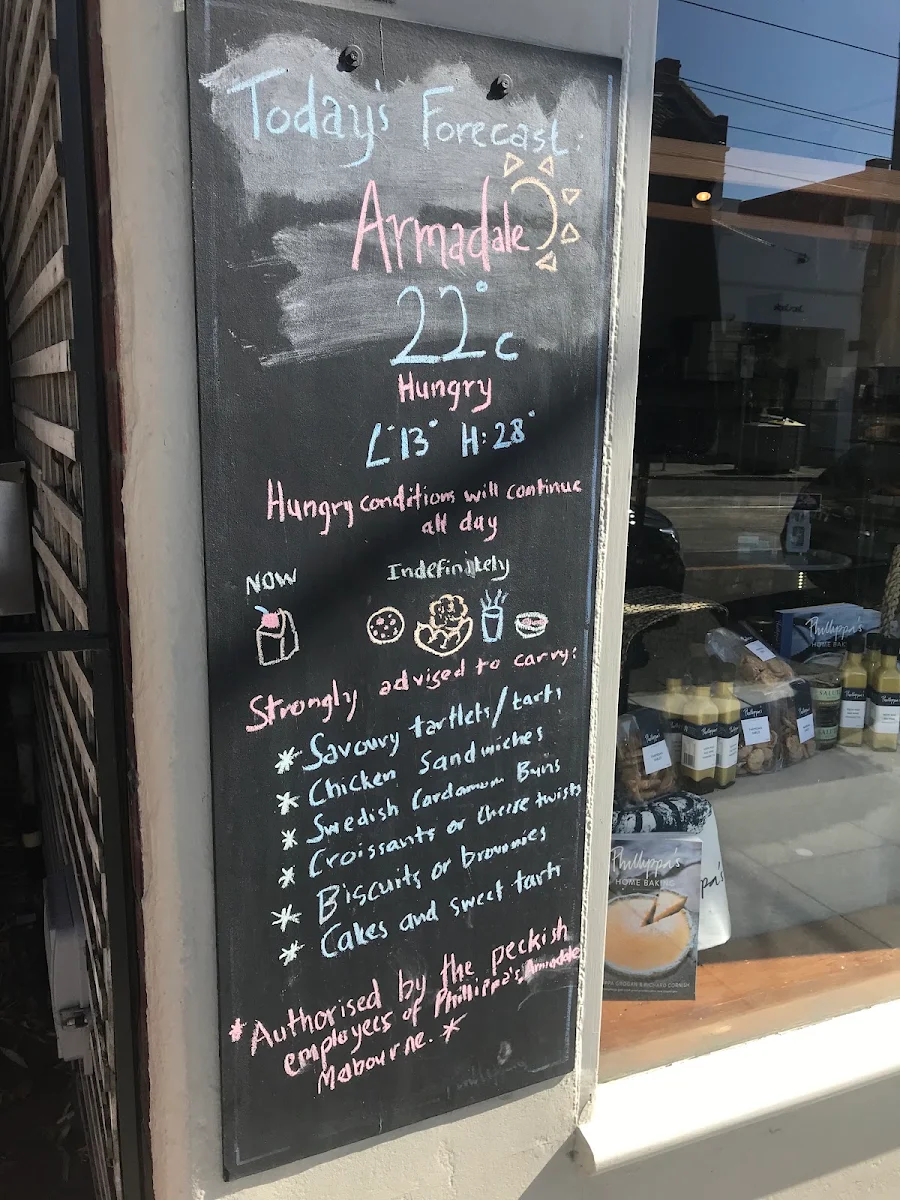 Today's Forecast:
Armadale
22°c
Hungry
L:13° H:28°
Hungry conditions will continue
all day
NOW
Indefinitely
Strongly advised to carry:
* Savoury tartlets/tarts
* Chicken Sandwiches
* Swedish Cardamom Buns
* Croissants or cheese twists
* Biscuits or brownies
* Cakes and sweet tarts
* Authorised by the peckish
employees of Phillippa's, Armadale
Melbourne. *
Phillippa's
HOME BAKING
Phillippa's
HOME BAK